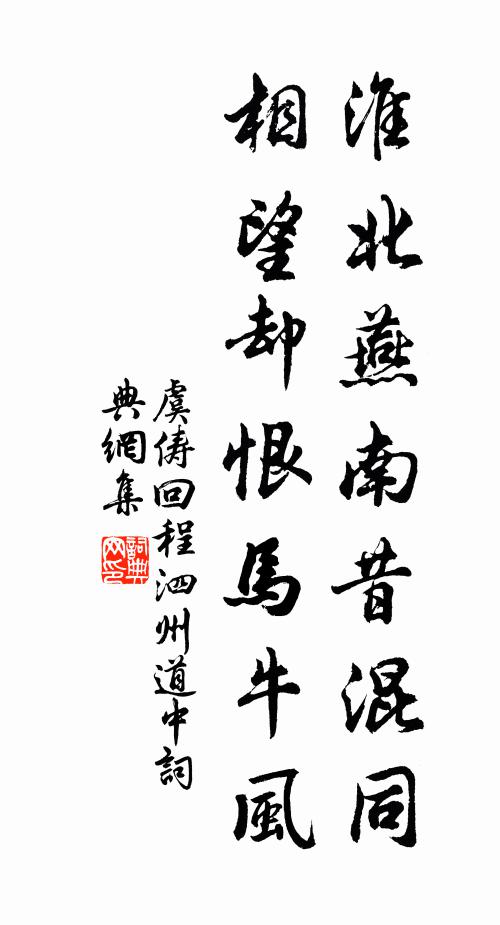 淮北燕南昔混同
相望却恨馬牛風
虞儔回程泗州道中詞
典網集
詞典
网印